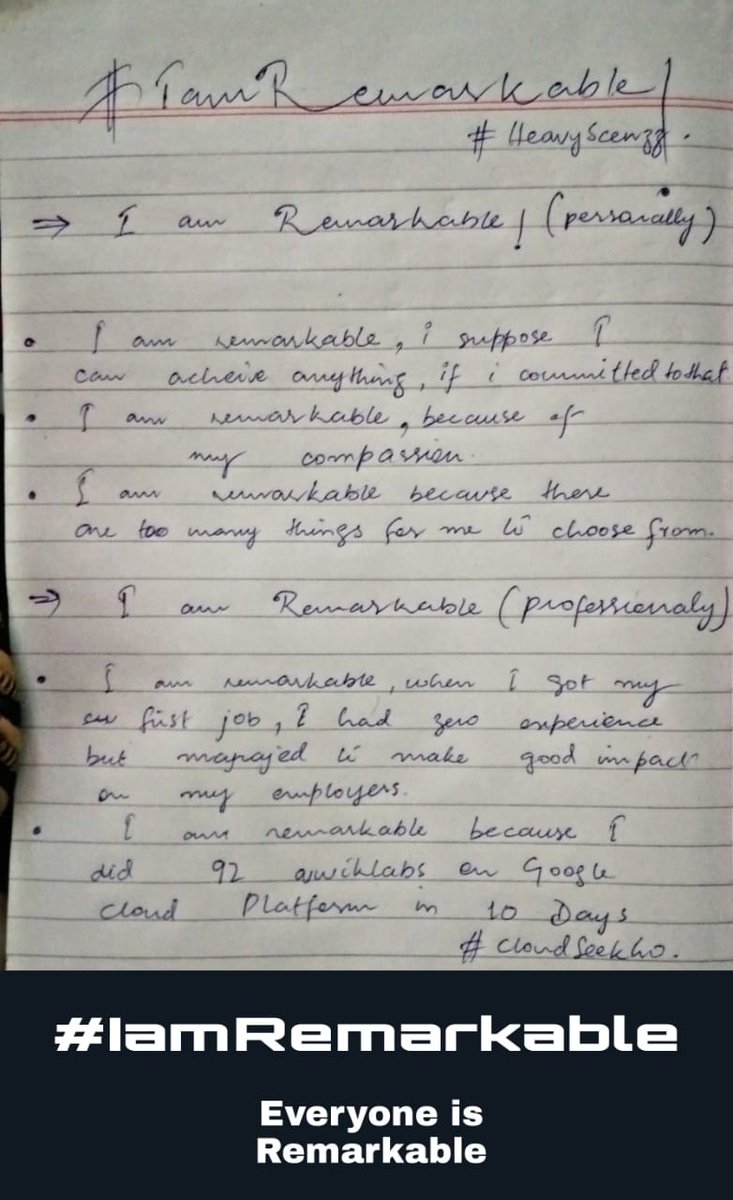 #IamRemarkable!
#HeavyScenzz.
⇒ I am Remarkable! (personally)
• I am remarkable, i suppose I
can acheive anything, if i committed to that
• I am remarkable, because of
my compassion.
• I am remarkable because there
are too many things for me to choose from.
⇒ I am Remarkable (professionaly)
• I am remarkable, when I got my
first job, I had zero experience
but managed to make good impact
on my employers.
• I am remarkable because I
did 92 qwiklabs on Google
Cloud Platform in 10 Days
#CloudSeekho.
#IamRemarkable
Everyone is
Remarkable